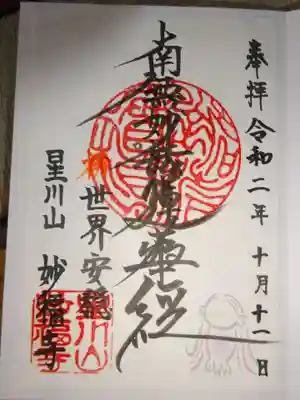 奉拝 令和二年十月十一日
南無妙法蓮華経
世界安穏
星川山 妙福寺